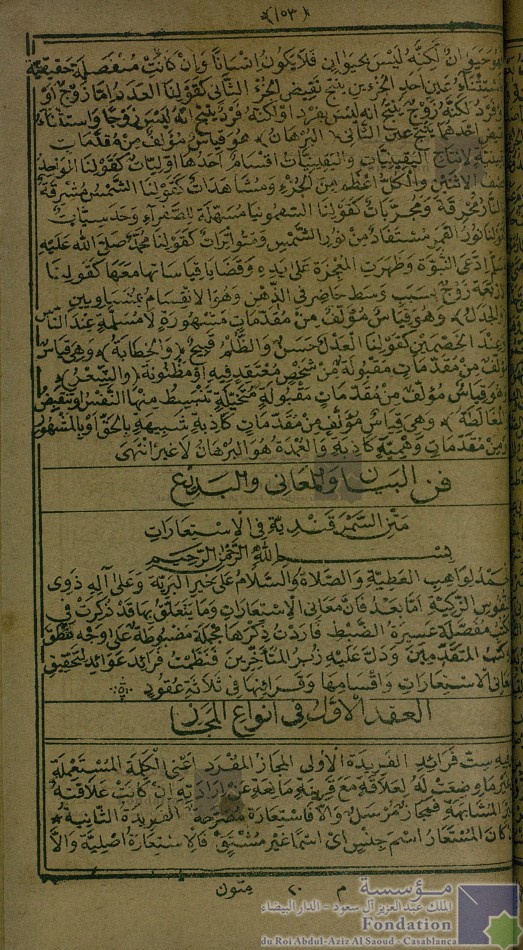 ﴿١٥٣﴾
هو حيوان لكنه ليس بحيوان فلا يكون انسانا وان كانت منفصلة حقيقية
فاستثناء عين احد الجزءين ينتج نقيض الجزء الثانى كقولنا العدد اما زوج او
فرد لكنه زوج ينتج انه ليس بفرد او لكنه فرد ينتج انه ليس زوجا واستثناء
نقيض احدهما ينتج عين الثانى ﴿البرهان﴾ هو قياس مؤلف من مقدمات
يقينية لانتاج اليقينيات واليقينيات اقسام احدها اوليات كقولنا الواحد
نصف الاثنين والكل اعظم من الجزء ومشاهدات كقولنا الشمس مشرقة
والنار محرقة ومجربات كقولنا السقمونيا مسهلة للصفراء وحدسيات
كقولنا نور القمر مستفاد من نور الشمس ومتواترات كقولنا محمد صلى الله عليه
وسلم ادعى النبوة وظهرت المعجزة على يده وقضايا قياساتها معها كقولنا
الاربعة زوج بسبب وسط حاضر فى الذهن وهو الانقسام بمتساويين
﴿والجدل﴾ وهو قياس مؤلف من مقدمات مشهورة او مسلمة عند الناس
او عند الخصمين كقولنا العدل حسن والظلم قبيح ﴿والخطابة﴾ وهى قياس
مؤلف من مقدمات مقبولة من شخص معتقد فيه او مظنونة ﴿والشعر﴾
وهو قياس مؤلف من مقدمات مقبولة متخيلة تنبسط منها النفس او تنقبض
﴿والمغالطة﴾ وهى قياس مؤلف من مقدمات كاذبة شبيهة بالحق او بالمشهور
او من مقدمات وهمية كاذبة والعمدة هو البرهان لا غير انتهى
فن البيان والمعانى والبديع
متن السمرقندية فى الاستعارات
بسم الله الرحمن الرحيم
الحمد لواهب العطية والصلاة والسلام على خير البرية وعلى آله ذوى
النفوس الزكية اما بعد فان معانى الاستعارات وما يتعلق بها قد ذكرت فى
الكتب مفصلة عسيرة الضبط فاردت ذكرها مجملة مضبوطة على وجه نطق
به كتب المتقدمين ودل عليه زبر المتأخرين فنظمت فرائد عوائد لتحقيق
معانى الاستعارات واقسامها وقرائنها فى ثلاثة عقود
العقد الاول فى انواع المجاز
وفيه ست فرائد الفريدة الاولى المجاز المفرد اعنى الكلمة المستعملة
فى غير ما وضعت له لعلاقة مع قرينة مانعة عن ارادته ان كانت علاقته
غير المشابهة فمجاز مرسل والا فاستعارة مصرحة الفريدة الثانية
ان كان المستعار اسم جنس اى اسما غير مشتق فالاستعارة اصلية والا
م ٢٠ متون
مؤسسة
الملك عبد العزيز آل سعود - الدار البيضاء
Fondation
du Roi Abdul-Aziz Al Saoud - Casablanca